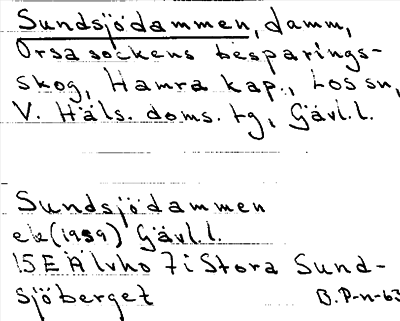 Sundsjödammen, damm,
Orsa sockens besparings-
skog, Hamra kap., Los sn,
V. Häls. doms. tg, Gävl.l.
Sundsjödammen
ek (1959) Gävl.l.
15E Älvho 7i Stora Sund-
sjöberget B.P-n-63